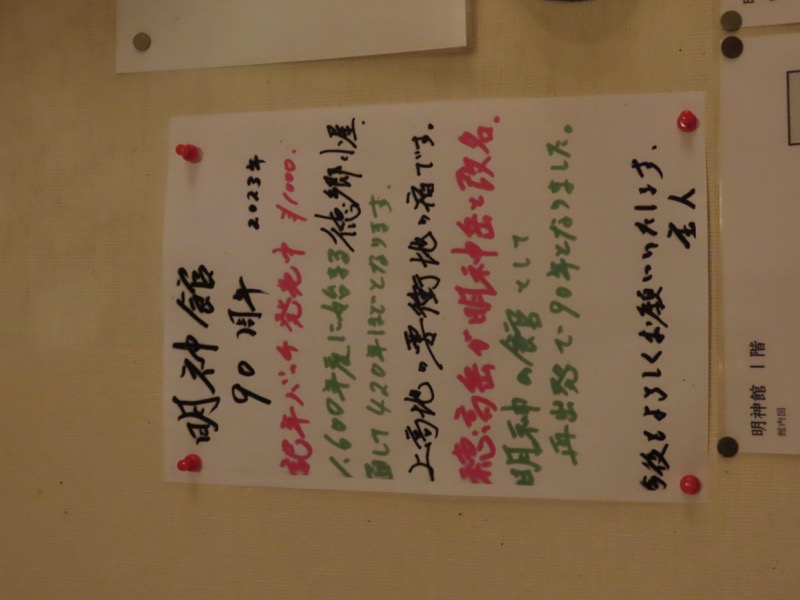 明神館
90周年 2023年
記年バッチ発売中 ¥1000.
1.600年度に始まる徳郷小屋
して420年ほどとなります.
上高地の要衝地の宿です。
穂高岳が明神岳と改名.
明神の館として
再出発で90年となりました。
今後もよろしくお願いいたします.
主人
明神館 1階
館内図